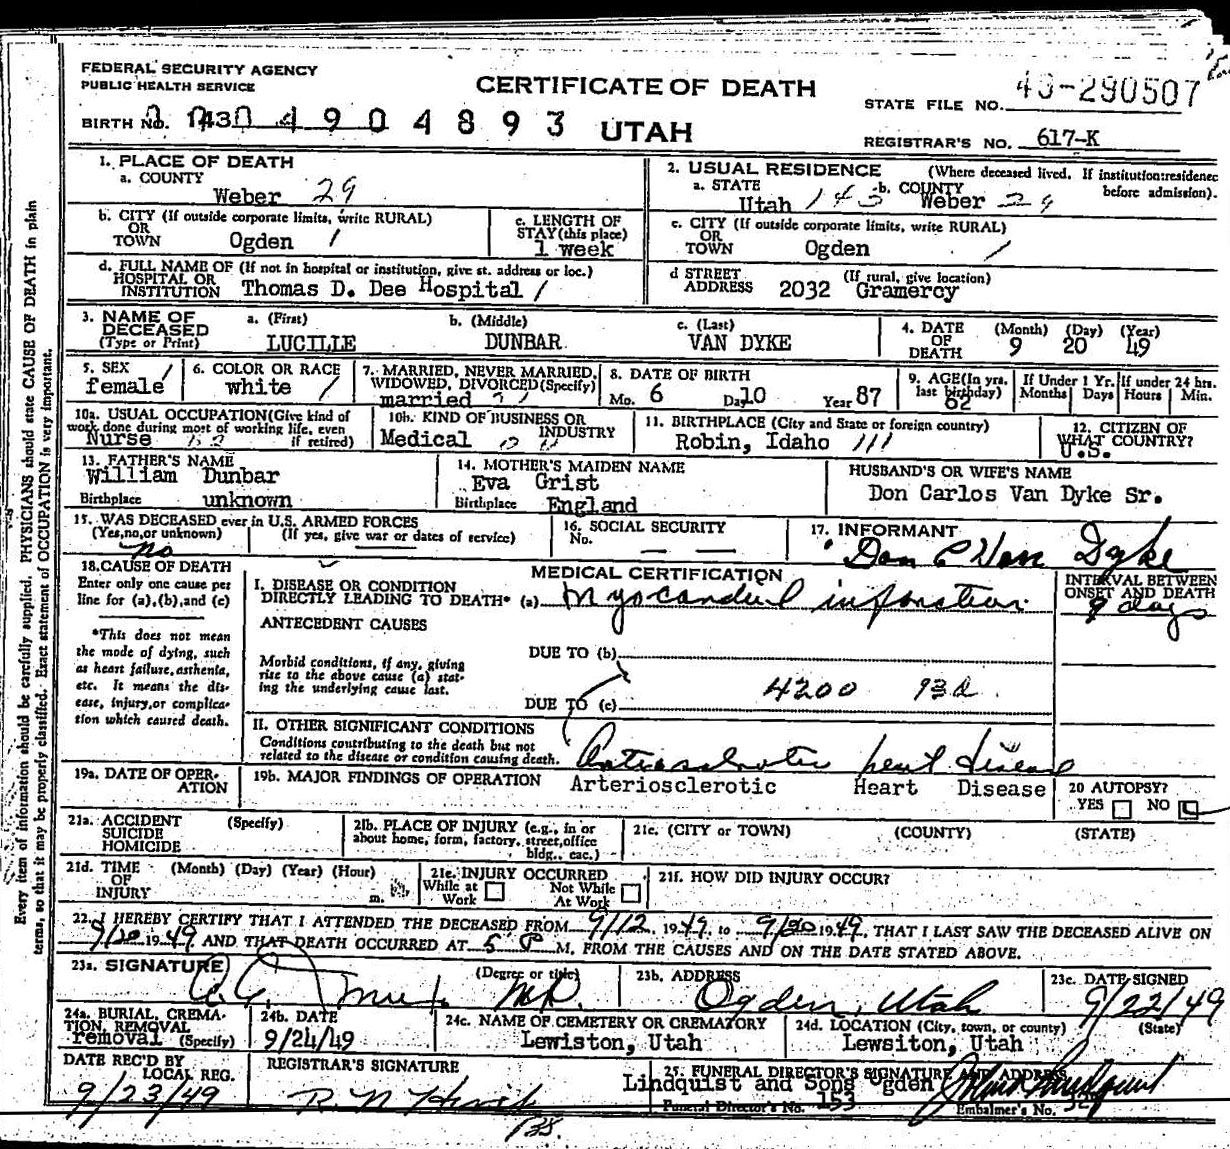 FEDERAL SECURITY AGENCY
PUBLIC HEALTH SERVICE
CERTIFICATE OF DEATH
STATE FILE NO. 49-290507
BIRTH NO. 4904893 UTAH
REGISTRAR'S NO. 617-K
1. PLACE OF DEATH
a. COUNTY
Weber 29
2. USUAL RESIDENCE (Where deceased lived. If institution:residence before admission).
a. STATE b. COUNTY
Utah 143 Weber 29
b. CITY (If outside corporate limits, write RURAL)
OR
TOWN Ogden /
c. LENGTH OF
STAY (this place)
1 week
c. CITY (If outside corporate limits, write RURAL)
OR
TOWN Ogden /
d. FULL NAME OF (If not in hospital or institution, give st. address or loc.)
HOSPITAL OR
INSTITUTION Thomas D. Dee Hospital /
d STREET (If rural, give location)
ADDRESS 2032 Gramercy
3. NAME OF a. (First) b. (Middle) c. (Last)
DECEASED
(Type or Print) LUCILLE DUNBAR VAN DYKE
4. DATE (Month) (Day) (Year)
OF
DEATH 9 20 49
5. SEX
female
6. COLOR OR RACE
white
7. MARRIED, NEVER MARRIED,
WIDOWED, DIVORCED (Specify)
married
8. DATE OF BIRTH
Mo. 6 Day 10 Year 87
9. AGE (In yrs.
last birthday)
62
If Under 1 Yr.
Months Days
If under 24 hrs.
Hours Min.
10a. USUAL OCCUPATION (Give kind of
work done during most of working life, even
if retired)
Nurse
10b. KIND OF BUSINESS OR
INDUSTRY
Medical
11. BIRTHPLACE (City and State or foreign country)
Robin, Idaho 111
12. CITIZEN OF
WHAT COUNTRY?
U.S.
13. FATHER'S NAME
William Dunbar
Birthplace unknown
14. MOTHER'S MAIDEN NAME
Eva Grist
Birthplace England
HUSBAND'S OR WIFE'S NAME
Don Carlos Van Dyke Sr.
15. WAS DECEASED ever in U.S. ARMED FORCES
(Yes, no, or unknown) (If yes, give war or dates of service)
no
16. SOCIAL SECURITY
No. — —
17. INFORMANT
Don C Van Dyke
18. CAUSE OF DEATH
Enter only one cause per
line for (a), (b), and (c)
*This does not mean
the mode of dying, such
as heart failure, asthenia,
etc. It means the dis-
ease, injury, or complica-
tion which caused death.
MEDICAL CERTIFICATION
I. DISEASE OR CONDITION
DIRECTLY LEADING TO DEATH* (a) Myocardial infarction
INTERVAL BETWEEN
ONSET AND DEATH
9 days
ANTECEDENT CAUSES
Morbid conditions, if any, giving
rise to the above cause (a) stat-
ing the underlying cause last.
DUE TO (b)
4200 93d
DUE TO (c)
II. OTHER SIGNIFICANT CONDITIONS
Conditions contributing to the death but not
related to the disease or condition causing death.
Arteriosclerotic heart disease
19a. DATE OF OPER-
ATION
19b. MAJOR FINDINGS OF OPERATION
Arteriosclerotic Heart Disease
20 AUTOPSY?
YES NO
21a. ACCIDENT (Specify)
SUICIDE
HOMICIDE
21b. PLACE OF INJURY (e.g., in or
about home, form, factory, street, office
bldg., eac.)
21c. (CITY or TOWN) (COUNTY) (STATE)
21d. TIME (Month) (Day) (Year) (Hour)
OF
INJURY m.
21e. INJURY OCCURRED
While at Not While
Work At Work
21f. HOW DID INJURY OCCUR?
22. I HEREBY CERTIFY THAT I ATTENDED THE DECEASED FROM 9/12, 1949, to 9/20 1949, THAT I LAST SAW THE DECEASED ALIVE ON
9/20 1949 AND THAT DEATH OCCURRED AT 5 P M, FROM THE CAUSES AND ON THE DATE STATED ABOVE.
23a. SIGNATURE (Degree or title)
MD.
23b. ADDRESS
Ogden, Utah
23c. DATE SIGNED
9/22/49
24a. BURIAL, CREMA-
TION, REMOVAL
(Specify)
removal
24b. DATE
9/24/49
24c. NAME OF CEMETERY OR CREMATORY
Lewiston, Utah
24d. LOCATION (City, town, or county) (State)
Lewsiton, Utah
DATE REC'D BY
LOCAL REG.
9/23/49
REGISTRAR'S SIGNATURE
25. FUNERAL DIRECTOR'S SIGNATURE AND ADDRESS
Lindquist and Sons Ogden
Funeral Director's No. 153
Embalmer's No.
Every item of information should be carefully supplied. PHYSICIANS should state CAUSE OF DEATH in plain
terms, so that it may be properly classified. Exact statement of OCCUPATION is very important.